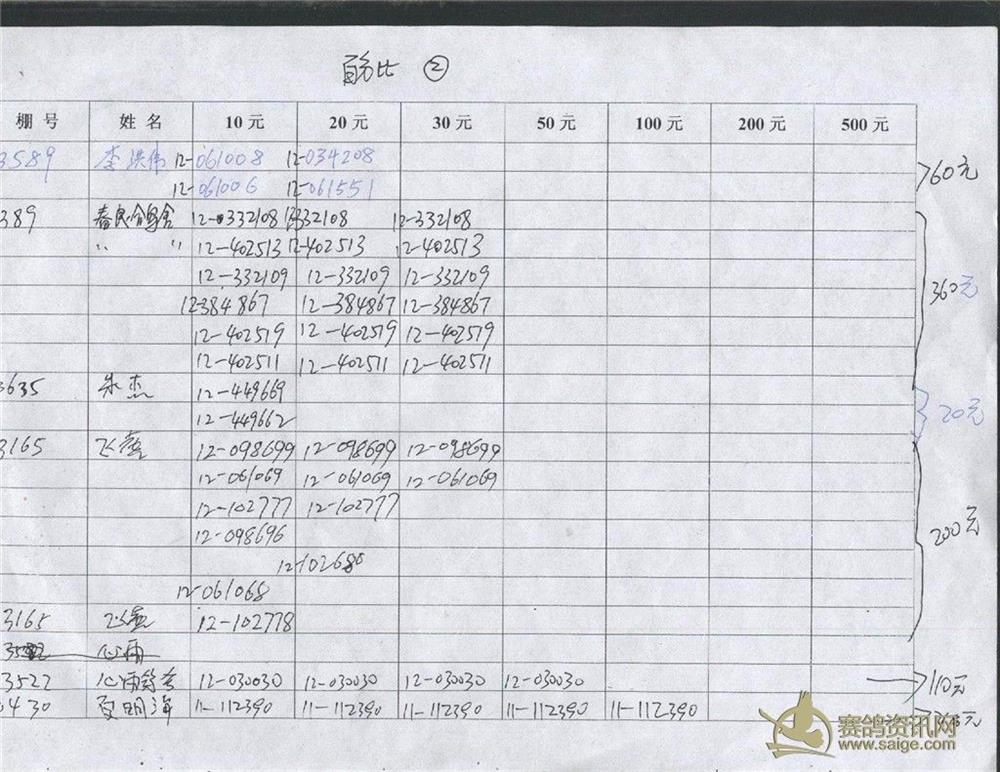 百分比 ②
棚号 姓名 10元 20元 30元 50元 100元 200元 500元
3589 李洪伟 12-061008 12-034208
12-061006 12-061551 60元
389 春良 12-332108 332108 12-332108
〃 〃 12-402513 12-402513 12-402513
12-332109 12-332109 12-332109 360元
12-384867 12-384867 12-384867
12-402519 12-402519 12-402519
12-402511 12-402511 12-402511
3635 朱杰 12-449669
12-449662 20元
3165 12-098699 12-098699 12-098699
12-061069 12-061069 12-061069
12-102777 12-102777
12-098696 200元
12-102680
12-061068
3165 12-102778
心雨
3522 心雨 12-030030 12-030030 12-030030 12-030030 110元
0430 夏明海 11-112390 11-112390 11-112390 11-112390 11-112390 元
赛鸽资讯网
www.saige.com